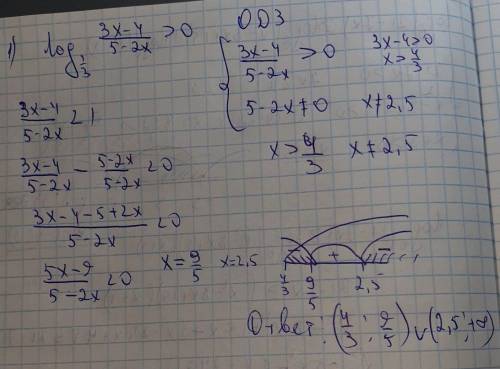 1) log_{1/3} (3x-4)/(5-2x) > 0
(3x-4)/(5-2x) < 1
(3x-4)/(5-2x) - (5-2x)/(5-2x) < 0
(3x-4-5+2x)/(5-2x) < 0
(5x-9)/(5-2x) < 0 x = 9/5 x = 2,5
ОДЗ
{ (3x-4)/(5-2x) > 0 3x-4>0
x > 4/3
5-2x ≠ 0 x ≠ 2,5
x > 4/3 x ≠ 2,5
- + -
4/3 9/5 2,5
Ответ: (4/3; 9/5) ∪ (2,5; +∞)